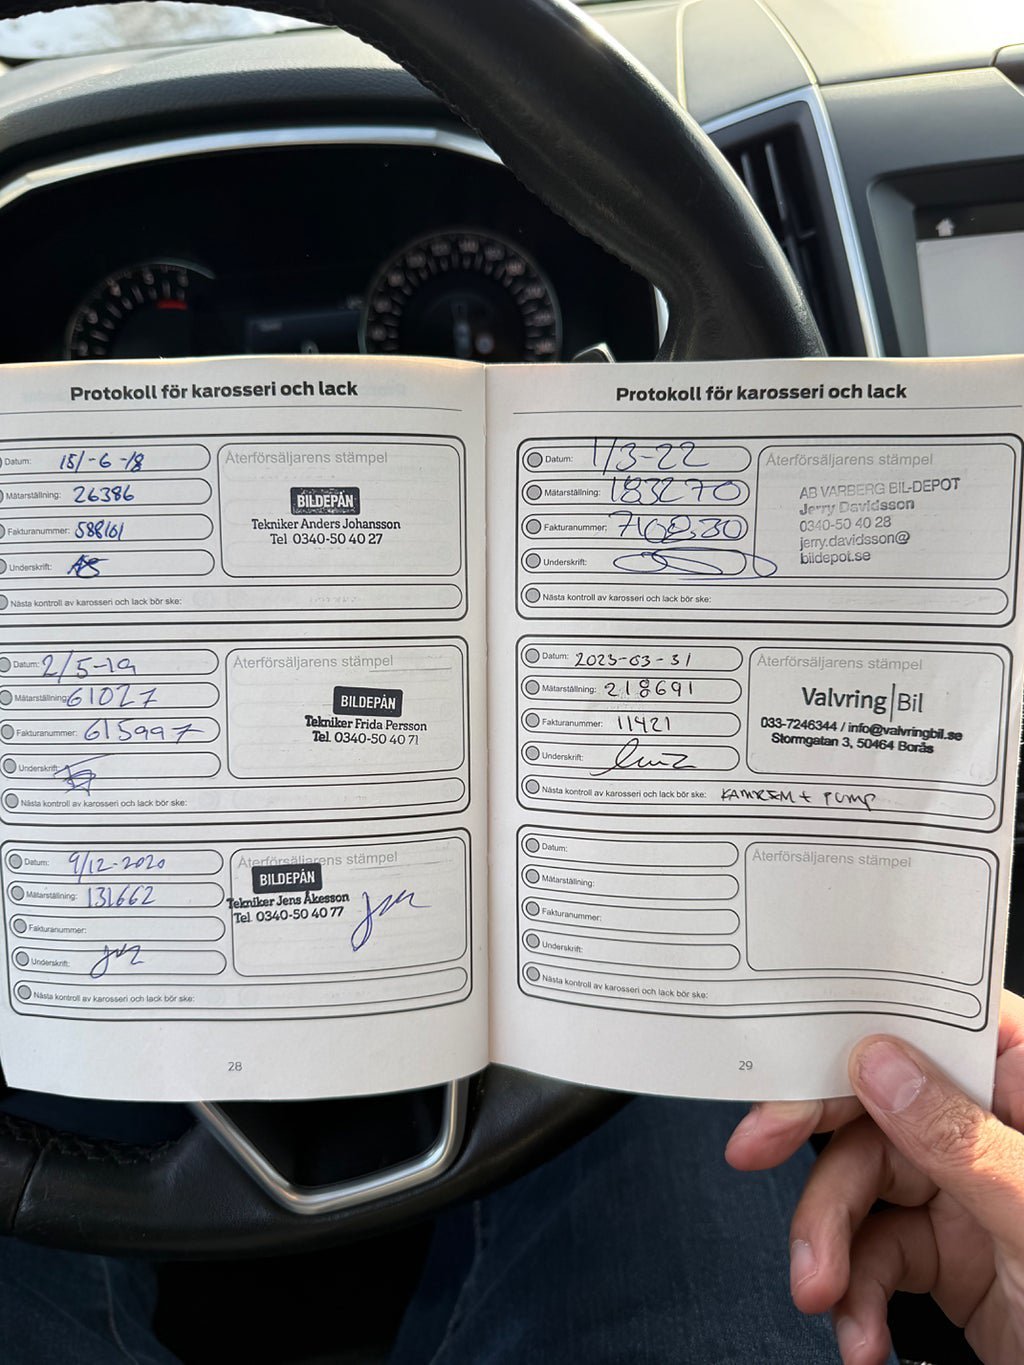 Protokoll för karosseri och lack
Datum: 15/-6-18
Mätarställning: 26386
Fakturanummer: 588161
Underskrift:
Nästa kontroll av karosseri och lack bör ske:
Återförsäljarens stämpel
BILDEPÅN
Tekniker Anders Johansson
Tel 0340-50 40 27
Datum: 2/5-19
Mätarställning: 61027
Fakturanummer: 615997
Underskrift:
Nästa kontroll av karosseri och lack bör ske:
Återförsäljarens stämpel
BILDEPÅN
Tekniker Frida Persson
Tel. 0340-50 40 71
Datum: 9/12-2020
Mätarställning: 131662
Fakturanummer:
Underskrift:
Nästa kontroll av karosseri och lack bör ske:
Återförsäljarens stämpel
BILDEPÅN
Tekniker Jens Åkesson
Tel. 0340-50 40 77
28
Protokoll för karosseri och lack
Datum: 1/3-22
Mätarställning: 183270
Fakturanummer:
Underskrift:
Nästa kontroll av karosseri och lack bör ske:
Återförsäljarens stämpel
AB VARBERG BIL-DEPOT
Jerry Davidsson
0340-50 40 28
jerry.davidsson@
bildepot.se
Datum: 2023-03-31
Mätarställning: 218691
Fakturanummer: 11421
Underskrift:
Nästa kontroll av karosseri och lack bör ske: KAMREM + PUMP
Återförsäljarens stämpel
Valvring|Bil
033-7246344 / info@valvringbil.se
Stormgatan 3, 50464 Borås
Datum:
Mätarställning:
Fakturanummer:
Underskrift:
Nästa kontroll av karosseri och lack bör ske:
Återförsäljarens stämpel
29